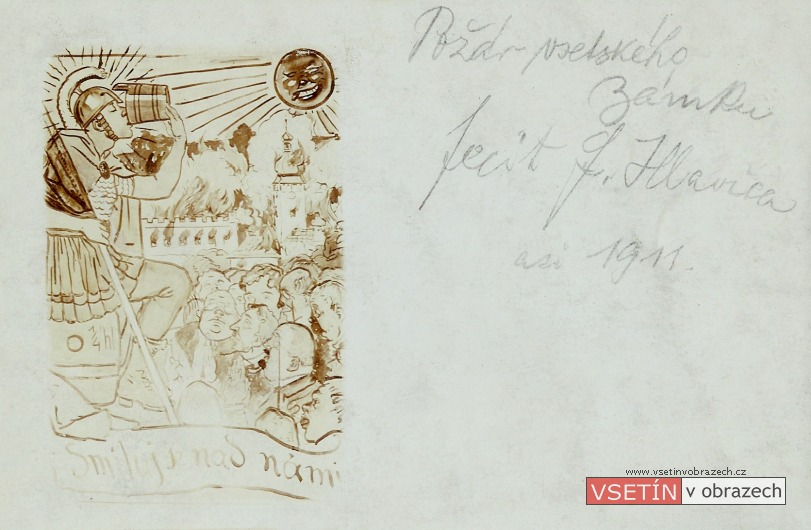 Požár vsetského
zámku
fecit F. Hlavica
asi 1911.
2 hl
Smiluj se nad námi
www.vsetinvobrazech.cz
VSETÍN v obrazech